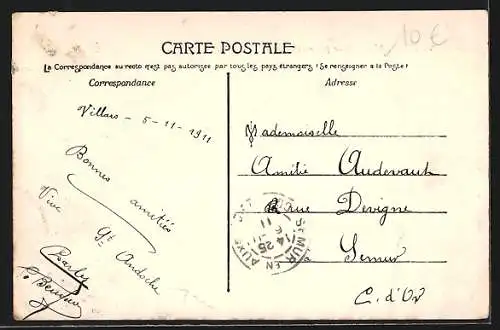 10 €
CARTE POSTALE
La Correspondance au recto n'est pas autorisée par tous les pays étrangers (Se renseigner à la Poste)
Correspondance
Adresse
Villars - 5-11-1911
Bonnes amitiés
Vive St Andoche
Mademoiselle
Amitié Audevaut
Rue Devigne
Semur
C. d'Or
SEMUR EN AUXOIS
14 25
6
11